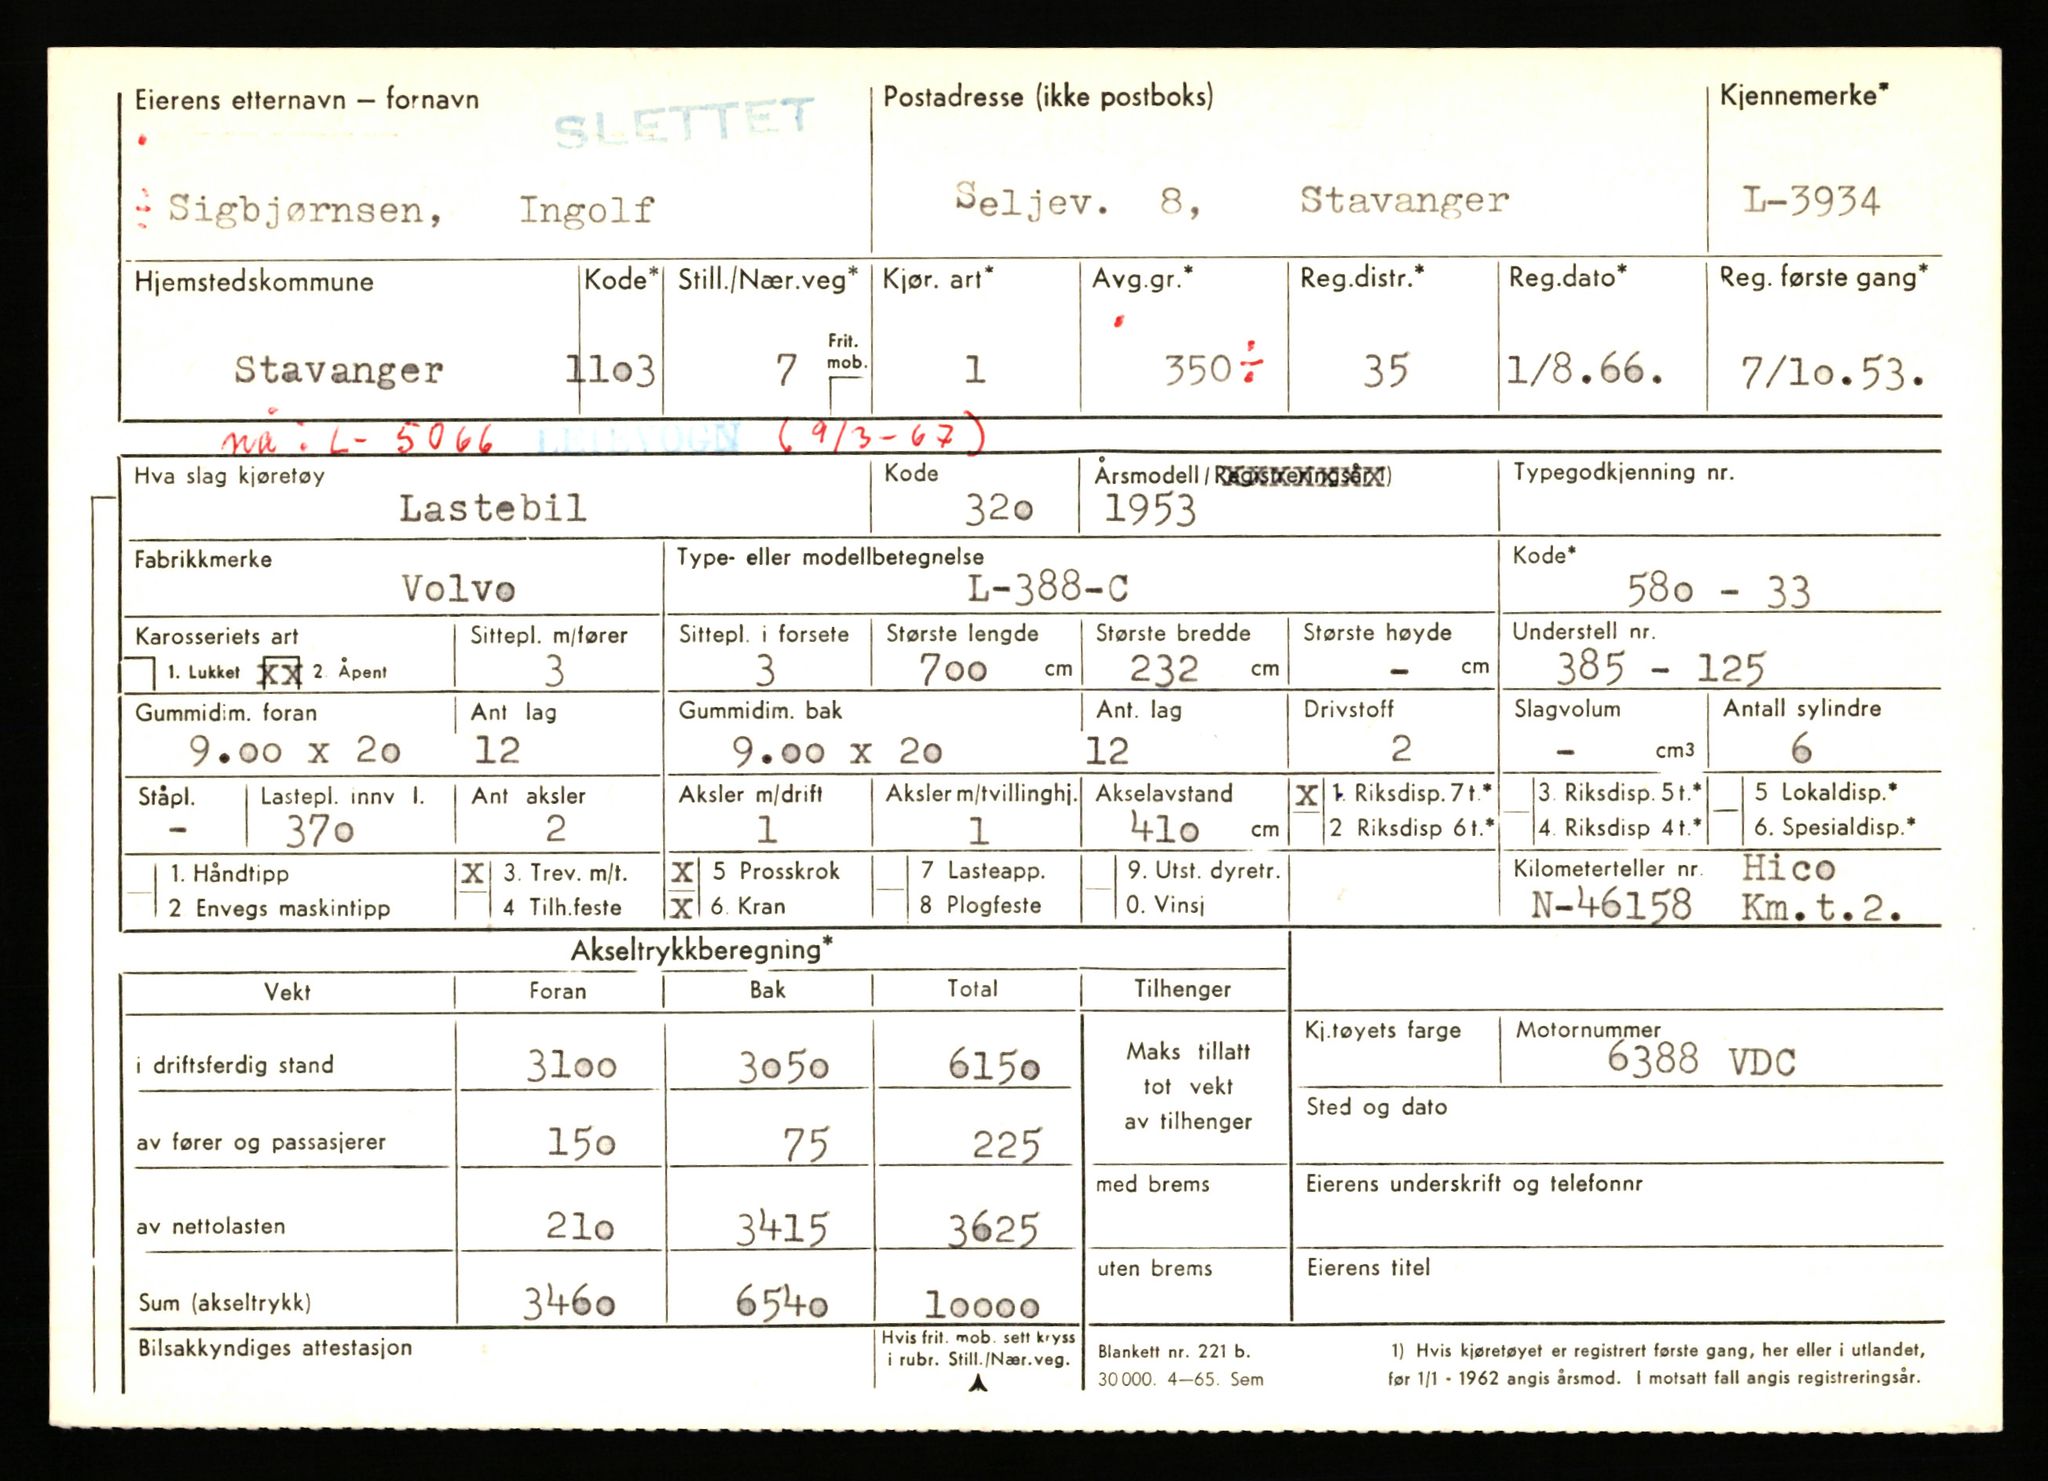 Eierens etternavn – fornavn SLETTET Postadresse (ikke postboks) Kjennemerke*
Sigbjørnsen, Ingolf Seljev. 8, Stavanger L-3934
Hjemstedskommune Kode* Still./Nær.veg* Kjør. art* Avg.gr.* Reg.distr.* Reg.dato* Reg. første gang*
Frit. mob.
Stavanger 11o3 7 1 350 ÷ 35 1/8.66. 7/1o.53.
nå: L- 5066 LEIEVOGN (9/3-67)
Hva slag kjøretøy Kode Årsmodell/Registreringsår 1) Typegodkjenning nr.
Lastebil 32o 1953
Fabrikkmerke Type- eller modellbetegnelse Kode*
Volvo L-388-C 58o - 33
Karosseriets art Sittepl. m/fører Sittepl. i forsete Største lengde Største bredde Største høyde Understell nr.
1. Lukket XX 2. Åpent 3 3 7oo cm 232 cm - cm 385 - 125
Gummidim. foran Ant lag Gummidim. bak Ant. lag Drivstoff Slagvolum Antall sylindre
9.oo x 2o 12 9.oo x 2o 12 2 - cm3 6
Ståpl. Lastepl. innv l. Ant aksler Aksler m/drift Aksler m/tvillinghj. Akselavstand X 1. Riksdisp. 7 t.* 3. Riksdisp. 5 t.* 5 Lokaldisp.*
- 37o 2 1 1 41o cm 2 Riksdisp 6 t.* 4. Riksdisp 4 t.* 6. Spesialdisp.*
1. Håndtipp X 3. Trev. m/t. X 5 Prosskrok 7 Lasteapp. 9. Utst. dyretr. Kilometerteller nr. Hico
2 Envegs maskintipp 4 Tilh.feste X 6. Kran 8 Plogfeste 0. Vinsj N-46158 Km.t.2.
Akseltrykkberegning*
Vekt Foran Bak Total Tilhenger
Kj.tøyets farge Motornummer
i driftsferdig stand 31oo 3o5o 615o Maks tillatt tot vekt av tilhenger 6388 VDC
Sted og dato
av fører og passasjerer 15o 75 225
med brems Eierens underskrift og telefonnr
av nettolasten 21o 3415 3625
uten brems Eierens titel
Sum (akseltrykk) 346o 654o 1oooo
Bilsakkyndiges attestasjon Hvis frit. mob. sett kryss i rubr. Still./Nær.veg.
Blankett nr. 221 b. 1) Hvis kjøretøyet er registrert første gang, her eller i utlandet,
30 000. 4—65. Sem før 1/1 - 1962 angis årsmod. I motsatt fall angis registreringsår.